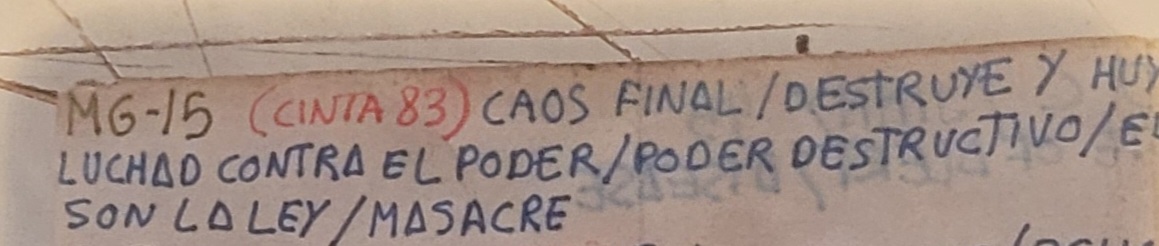 MG-15 (CINTA 83) CAOS FINAL/DESTRUYE Y HUY
LUCHAD CONTRA EL PODER/PODER DESTRUCTIVO/EL
SON LA LEY/MASACRE